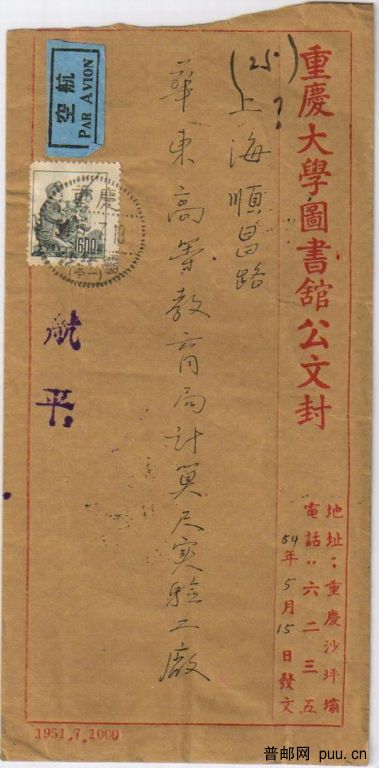 重慶大學圖書舘公文封
地址：重慶沙坪壩
電話：六二三五
54年5月15日發文
(25)
上海順昌路
華東高等教育局計算尺实验工廠
航空
PAR AVION
1600
重慶
航平
1951.7.1000
普邮网 puu.cn